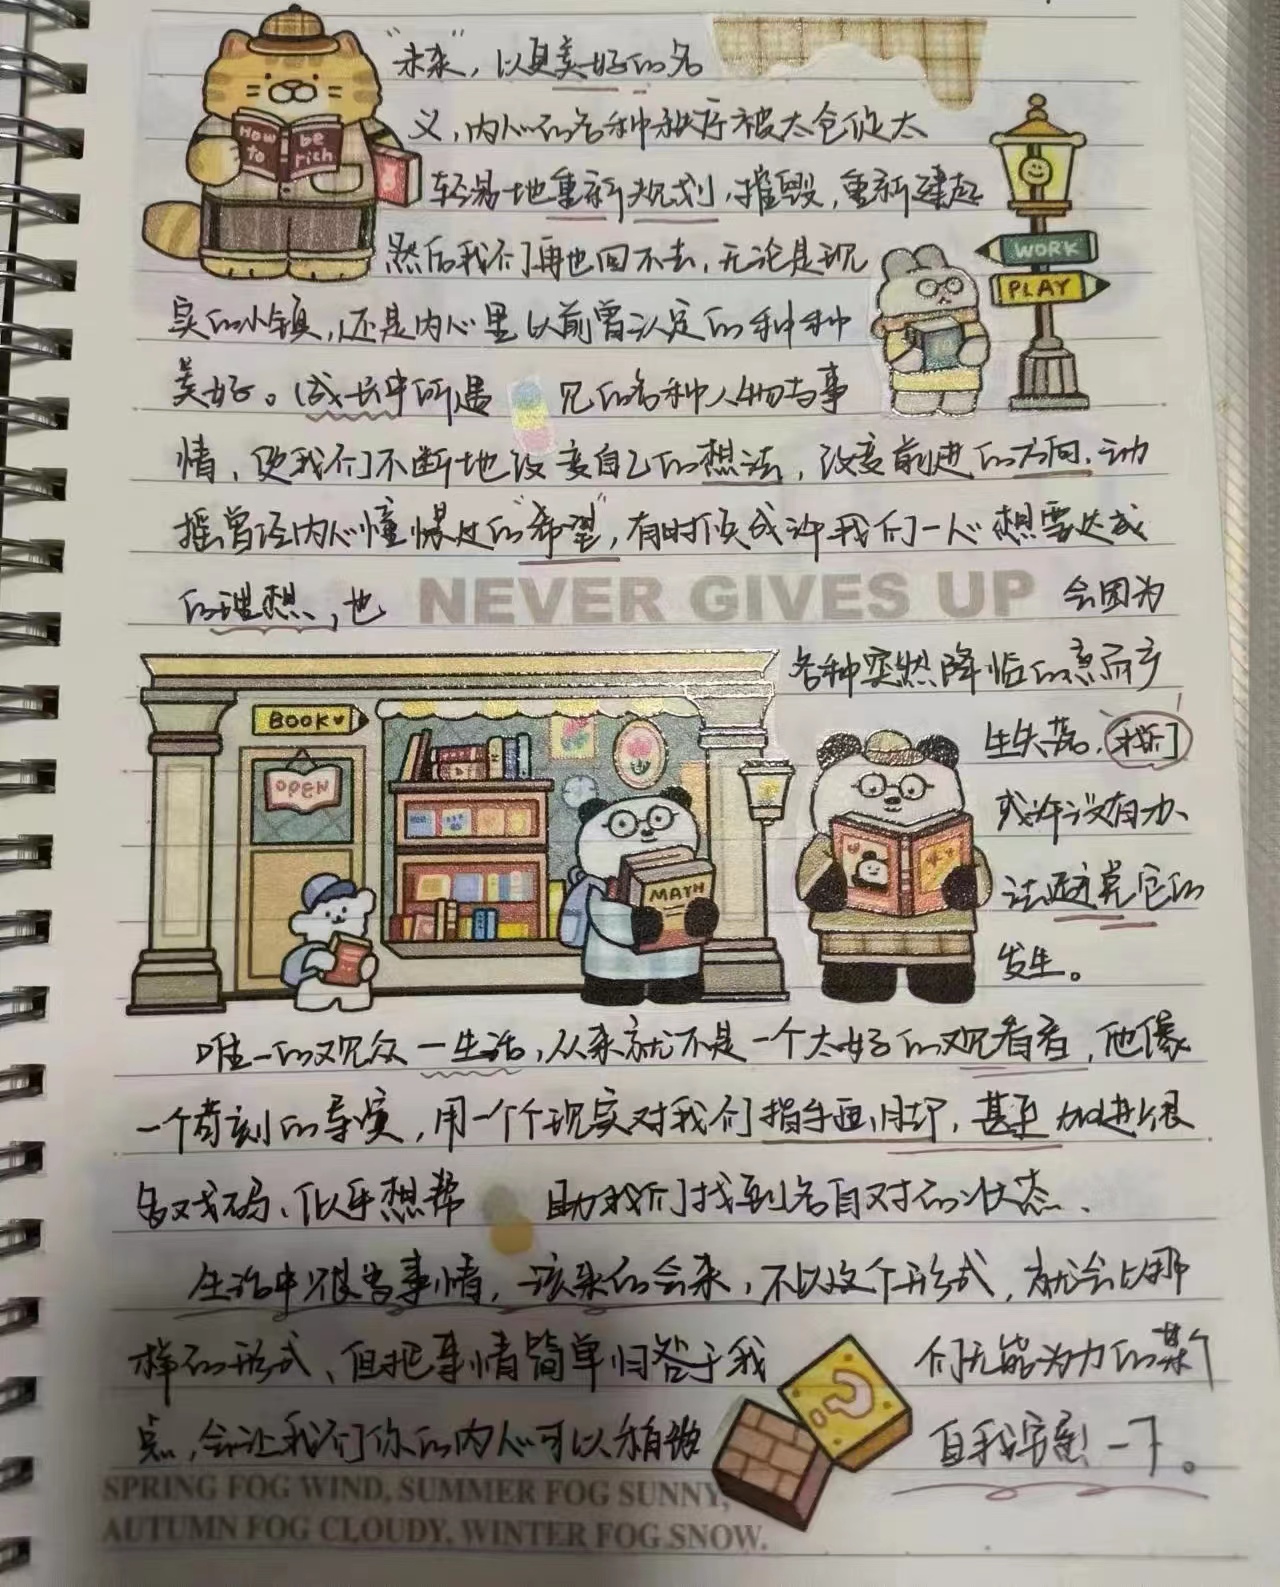 "未来"，以其美好的名
How to be rich
义，内心的各种秩序被太仓促太
轻易地重新规划，摧毁，重新建起
然后我们再也回不去，无论是现
WORK
PLAY
实的小镇，还是内心里以前曾认定的种种
美好。成长中所遇 见的各种人物与事
情，使我们不断地改变自己的想法，改变前进的方向，动
摇曾经内心憧憬过的"希望"，有时候或许我们一心想要达成
的理想，也 NEVER GIVES UP 会因为
各种突然降临的 而产
BOOK
生失落，
OPEN
或许没有办
MATH
法避免它的
发生。
唯一的观众一生活，从来就不是一个太好的观看者，他像
一个苛刻的导演，用一个个现实对我们指手画脚，甚至加进很
多戏码、似乎想帮 助我们找到各自对的状态、
生活中很多事情，该来的会来，不以这个形式，就会以那
样的形式、但把事情简单归咎于我 们无能为力的某个
点，会让我们你的内心可以稍微 自我宽慰一下。
SPRING FOG WIND, SUMMER FOG SUNNY,
AUTUMN FOG CLOUDY, WINTER FOG SNOW.